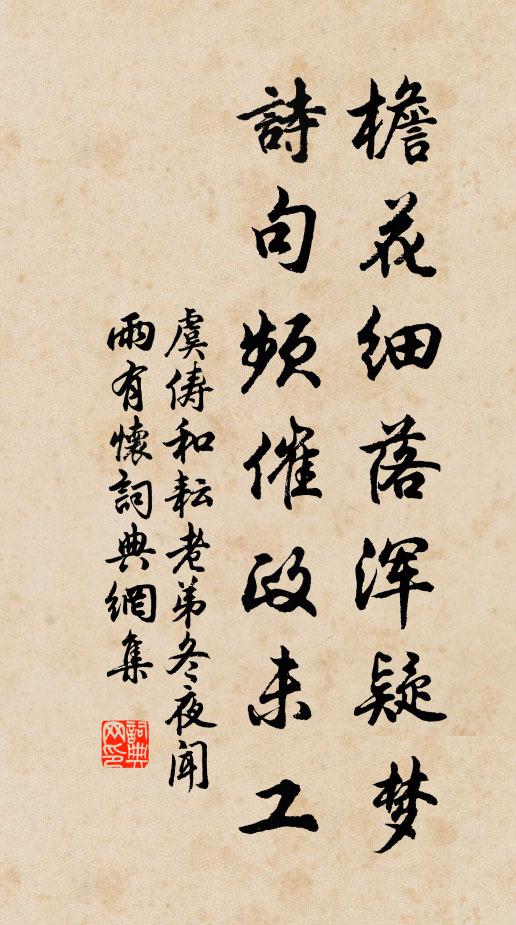 檐花细落浑疑梦
詩句频催政未工
虞俦和耘老弟冬夜闻
雨有懷詞典網集
詞典网印